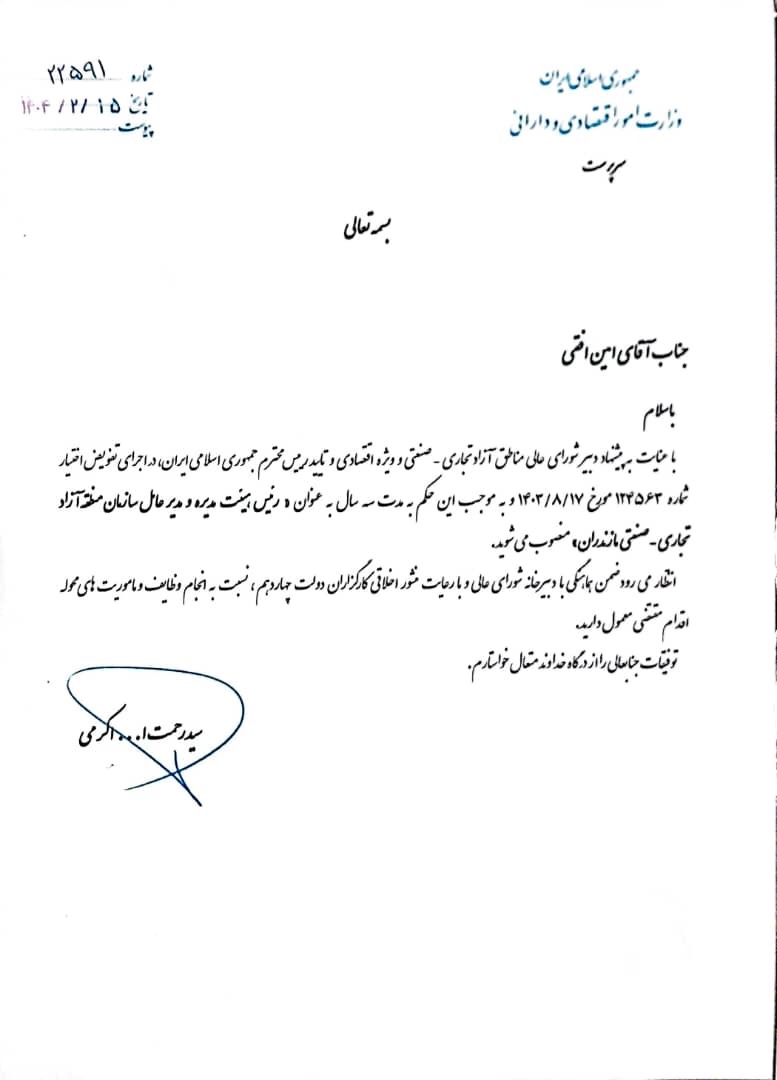 جمهوری اسلامی ایران
وزارت امور اقتصادی و دارائی
سرپرست
شماره ۲۲۵۹۱
تاریخ ۱۴۰۴/۲/۱۵
پیوست
بسمه تعالی
جناب آقای امین افقی
باسلام
با عنایت به پیشنهاد دبیر شورای عالی مناطق آزاد تجاری - صنعتی و ویژه اقتصادی و تایید رییس محترم جمهوری اسلامی ایران، در اجرای تفویض اختیار
شماره ۱۲۴۵۶۳ مورخ ۱۴۰۳/۸/۱۷ و به موجب این حکم به مدت سه سال به عنوان « رئیس هیئت مدیره و مدیر عامل سازمان منطقه آزاد
تجاری - صنعتی مازندران» منصوب می شوید.
انتظار می رود ضمن هماهنگی با دبیرخانه شورای عالی و با رعایت منشور اخلاقی کارگزاران دولت چهاردهم ، نسبت به انجام وظایف و ماموریت های محوله
اقدام مقتضی معمول دارید.
توفیقات جنابعالی را از درگاه خداوند متعال خواستارم.
سید رحمت ا... اکرمی